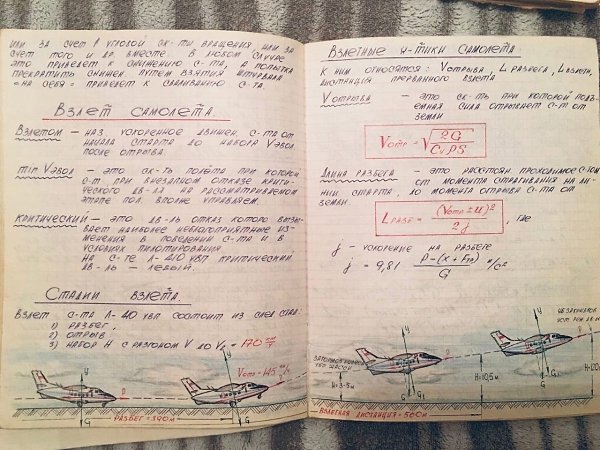 или за счет ↑ угловой ск-ти вращения, или за
счет того и др. вместе. В любом случае
это приведет к снижению с-та, а попытка
прекратить снижен. путем взятия штурвала
«на себя» приведет к сваливанию с-та.
Взлет самолета.
Взлетом – наз. ускоренное движен. с-та от
начала старта до набора Vэвол.
после отрыва.
min Vэвол – это ск-ть полета при которой
с-т при внезапном отказе крити-
ческого дв-ля на рассматриваемом
этапе пол. вполне управляем.
Критический – это дв-ль отказ которого вызы-
вает наиболее неблагоприятные из-
менения в поведении с-та и в
условиях пилотирования
На с-те Л-410 УВП критический
дв-ль – левый.
Стадии взлета.
Взлет с-та Л-410 УВП состоит из след. стад.
1) разбег,
2) отрыв
3) набор H с разгоном V до V₂ = 170 км/ч
Vотр = 145 км/ч
У
Р
G
У
G
Разбег = 390 м
Взлетные х-тики самолета
К ним относятся: Vотрыва, L разбега, L взлетн,
дистанция прерванного взлета
Vотрыва – это ск-ть при которой подъ-
емная сила отрывает с-т от
земли
Vотр = √ 2G / CyρS
Длина разбега – это расстоян. проходимое с-том
от момента страгивания на ли-
нии старта, до момента отрыва с-та от
земли
L разб = (Vотр ± U)² / 2j, где
j – ускорение на разбеге
j = 9,81 P – (X + Fтр) / G м/с²
У
G
H=3-5м
H=10,5м
У
G
Взлетная дистанция = 560м